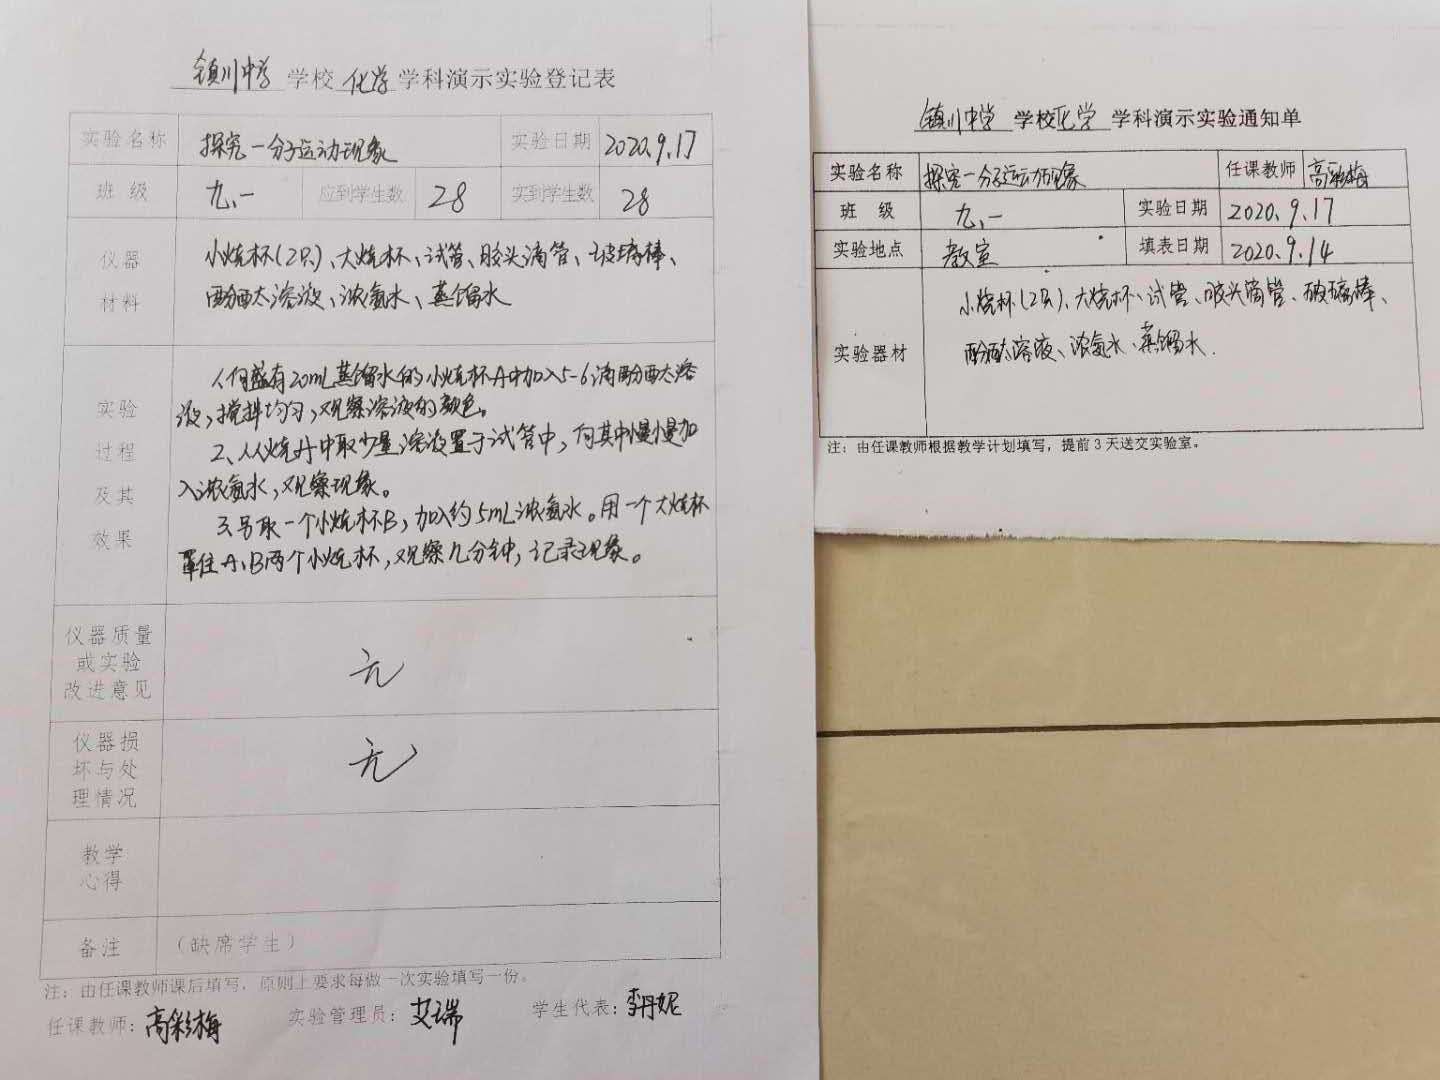 镇川中学 学校 化学 学科演示实验登记表
实验名称 探究一分子运动现象 实验日期 2020.9.17
班 级 九.一 应到学生数 28 实到学生数 28
仪器 小烧杯(2只)、大烧杯、试管、胶头滴管、玻璃棒、
材料 酚酞溶液、浓氨水、蒸馏水
实验
过程
及其
效果
1、向盛有20mL蒸馏水的小烧杯A中加入5-6滴酚酞溶
液,搅拌均匀,观察溶液的颜色。
2、从烧杯中取少量溶液置于试管中,向其中慢慢加
入浓氨水,观察现象。
3.另取一个小烧杯B,加入约5mL浓氨水。用一个大烧杯
罩住A、B两个小烧杯,观察几分钟,记录现象。
仪器质量
或实验
改进意见
无
仪器损
坏与处
理情况
无
教学
心得
备注 (缺席学生)
注:由任课教师课后填写,原则上要求每做一次实验填写一份。
任课教师:高彩梅 实验管理员:艾瑞 学生代表:李丹妮
镇川中学 学校化学 学科演示实验通知单
实验名称 探究一分子运动现象 任课教师 高彩梅
班 级 九.一 实验日期 2020.9.17
实验地点 教室 填表日期 2020.9.14
实验器材
小烧杯(2只)、大烧杯、试管、胶头滴管、玻璃棒、
酚酞溶液、浓氨水、蒸馏水.
注:由任课教师根据教学计划填写,提前3天送交实验室。